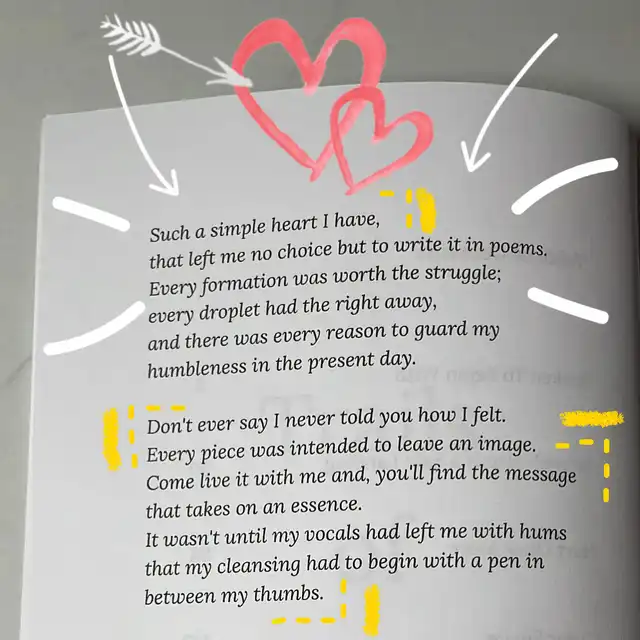 Such a simple heart I have,
that left me no choice but to write it in poems.
Every formation was worth the struggle;
every droplet had the right away,
and there was every reason to guard my
humbleness in the present day.
Don't ever say I never told you how I felt.
Every piece was intended to leave an image.
Come live it with me and, you'll find the message
that takes on an essence.
It wasn't until my vocals had left me with hums
that my cleansing had to begin with a pen in
between my thumbs.